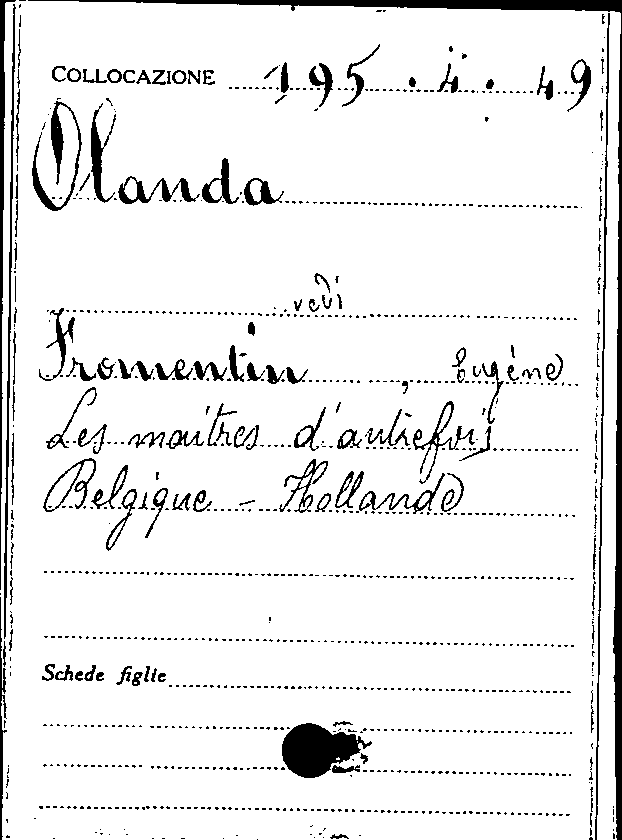 COLLOCAZIONE 195.4.49
Olanda
vedi
Fromentin, Eugéne
Les maitres d'autrefois
Belgique - Hollande
Schede figlie